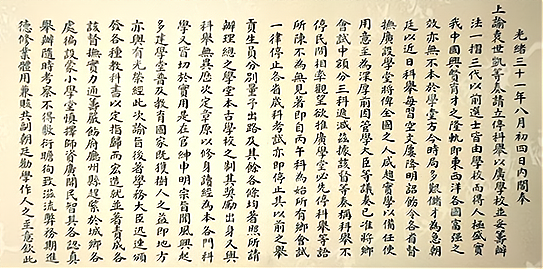 光緒三十一年八月初四日內閣奉
上諭袁世凱等奏請立停科舉以廣學校並妥籌辦
法一摺三代以前選士皆由學校而得人極盛實
我中國興賢育才之隆軌即東西洋各國富強之
效亦無不本於學堂方今時局多艱儲才為急朝
廷以近日科舉每習空文屢降明詔飭令各省督
撫廣設學堂將俾全國之人咸趨實學以備任使
用意至為深厚前因管學大臣等議奏已准將鄉
會試中額分三科遞減茲據該督等奏稱科舉不
停民間相率觀望欲推廣學堂必先停科舉等語
所陳不為無見著即自丙午科為始所有鄉會試
一律停止各省歲科考試亦即停止其以前之舉
貢生員分別量予出路及其餘各條均著照所請
辦理總之學堂本古學校之制其獎勵出身又與
科舉無異歷次定章原以修身讀經為本各門科
學又皆切於實用是在官紳申明宗旨聞風興起
多建學堂普及教育國家既獲樹人之益即地方
亦與有光榮經此次諭旨後著學務大臣迅速頒
發各種教科書以定指歸而宏造就並著責成各
該督撫實力通籌嚴飭府廳州縣趕緊於鄉城各
處徧設蒙小學堂慎擇師資廣開民智其各認真
舉辦隨時考察不得敷衍瞻徇致滋流弊務期進
德修業體用兼賅共副朝廷勸學作人之至意欽此